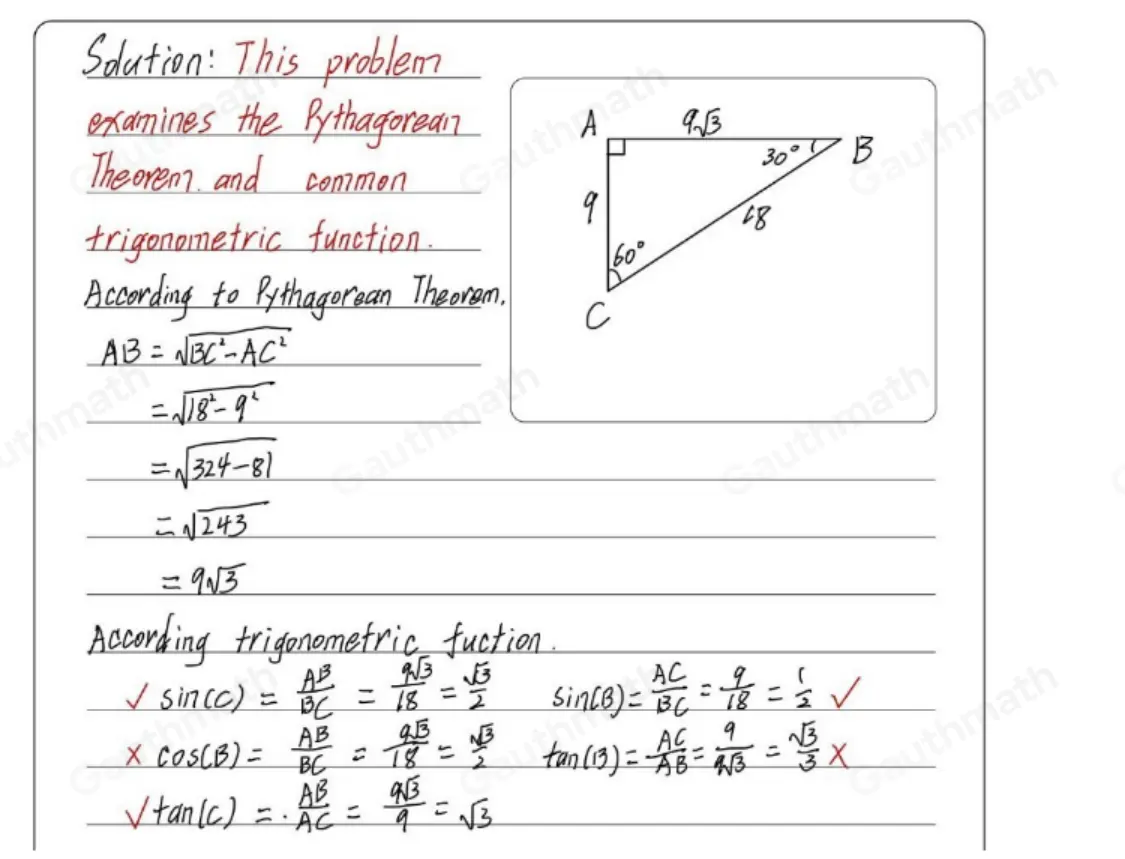 Solution: This problem
examines the Pythagorean
Theorem. and common
trigonometric function.
According to Pythagorean Theorem.
AB = √BC² - AC²
= √18² - 9²
= √324 - 81
= √243
= 9√3
A
9√3
30°
B
9
18
60°
C
According trigonometric fuction.
✓ sin(C) = AB/BC = 9√3/18 = √3/2 sin(B) = AC/BC = 9/18 = 1/2 ✓
× cos(B) = AB/BC = 9√3/18 = √3/2 tan(B) = AC/AB = 9/9√3 = √3/3 ×
✓ tan(C) = . AB/AC = 9√3/9 = √3
Gauthmath